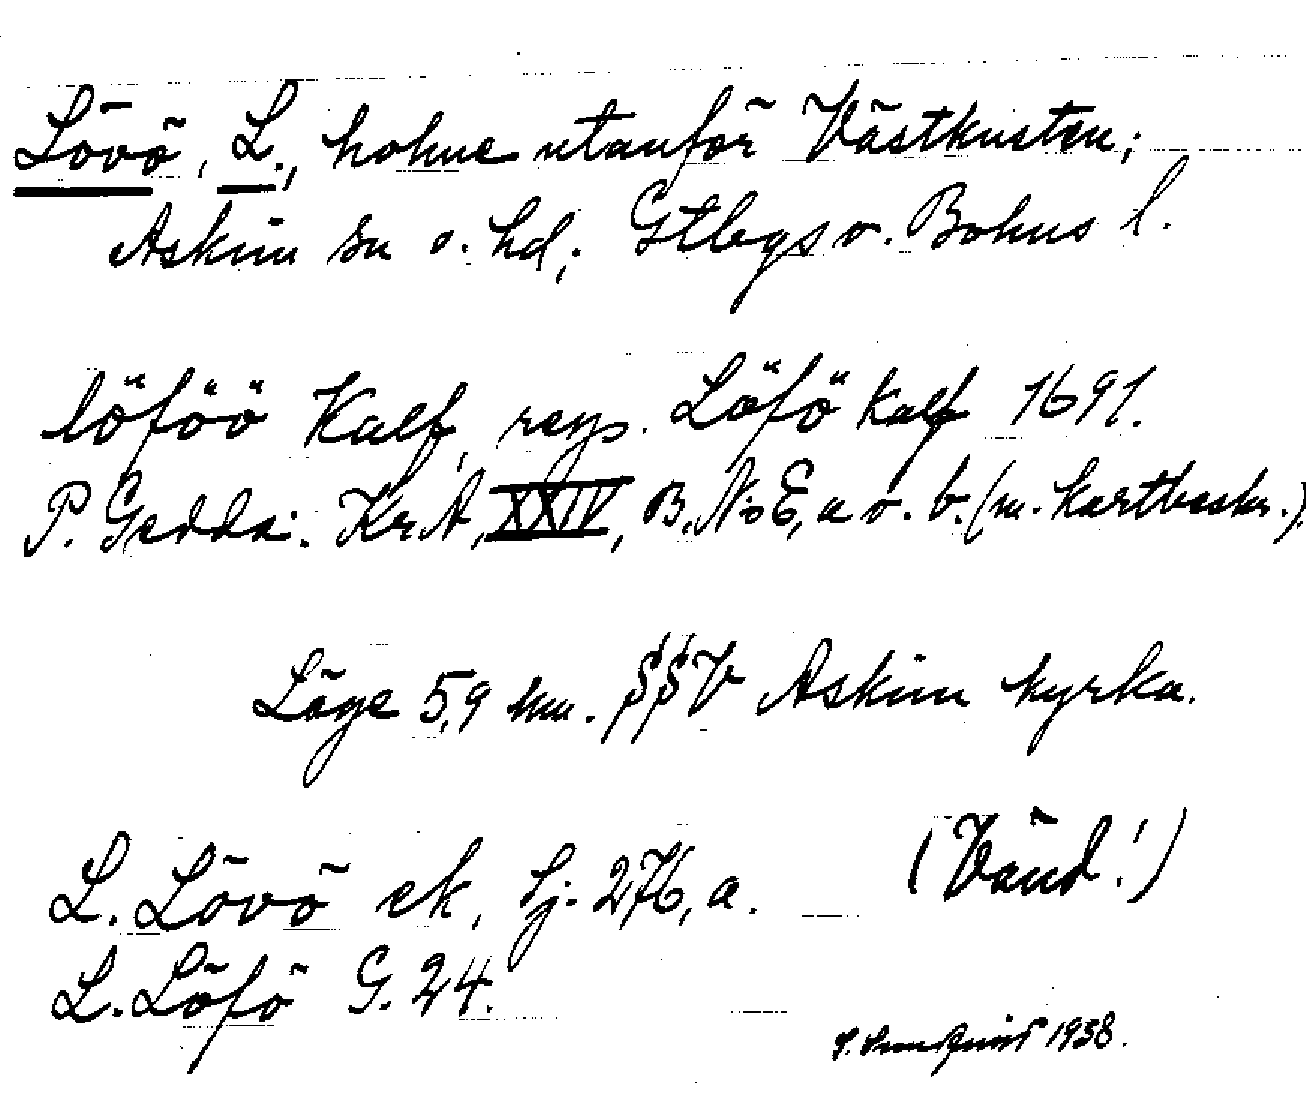 Lövö, L., holme utanför Västkusten;
Askim sn o. hd; Gtbgs o. Bohus l.
löföö Kalf, resp. Löfö kalf 1691.
P. Gedda: KrA, XXIV, B. N:o 6, a o. b. (m. kartbeskr.)
Läge 5,9 km. SSV Askim kyrka.
L. Lövö ek. Sj. 276, a. (Vänd!)
L. Löfö G. 24.
1938.